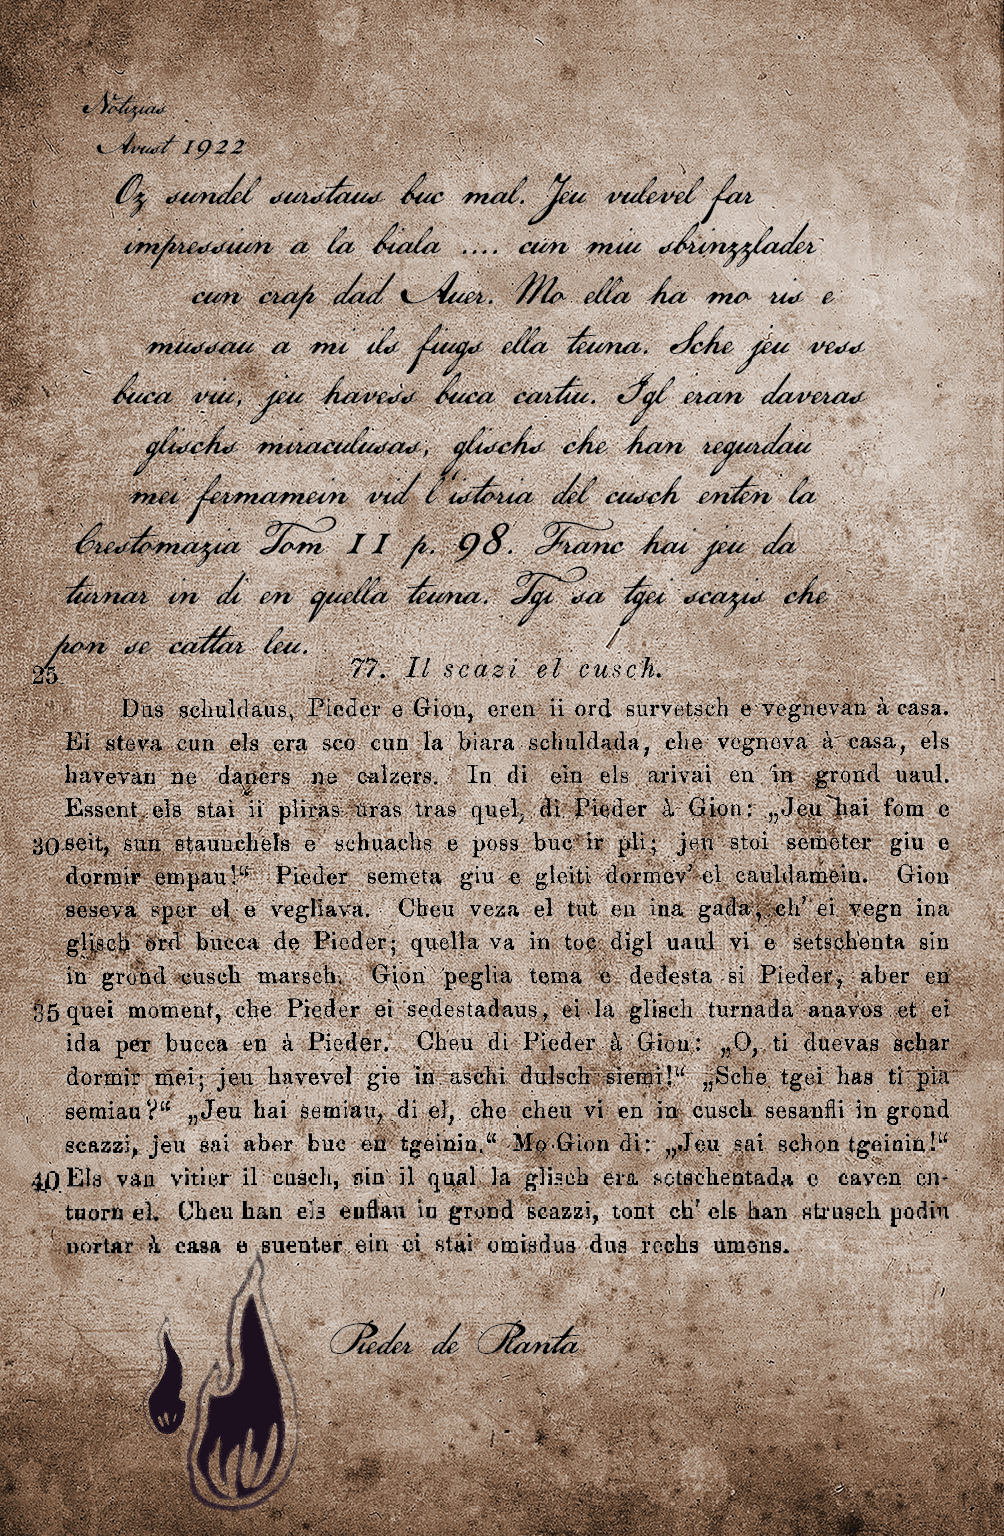 Notizias
Avust 1922
Oz sundel surstaus buc mal. Jeu vulevel far
impressiun a la biala .... cun miu sbrinzzlader
cun crap dad Auer. Mo ella ha mo ris e
mussau a mi ils fiugs ella teuna. Sche jeu vess
buca viu, jeu havess buca cartiu. Igl eran daveras
glischs miraculusas, glischs che han regurdau
mei fermamein vid l'istoria del cusch enten la
Crestomazia Tom II p. 98. Franc hai jeu da
turnar in di en quella teuna. Tgi sa tgei scazis che
pon se cattar leu.
25 77. Il scazi el cusch.
Dus schuldaus, Pieder e Gion, eren ii ord survetsch e vegnevan à casa.
Ei steva cun els era sco cun la biara schuldada, che vegneva à casa, els
havevan ne daners ne calzers. In di ein els arivai en in grond uaul.
Essent els stai ii pliras uras tras quel, di Pieder à Gion: „Jeu hai fom e
30 seit, sun staunchels e schuachs e poss buc ir pli; jeu stoi semeter giu e
dormir empau!“ Pieder semeta giu e gleiti dormev' el cauldamein. Gion
seseva sper el e vegliava. Cheu veza el tut en ina gada, ch' ei vegn ina
glisch ord bucca de Pieder; quella va in toc digl uaul vi e setschenta sin
in grond cusch marsch. Gion peglia tema e dedesta si Pieder, aber en
35 quei moment, che Pieder ei sedestadaus, ei la glisch turnada anavos et ei
ida per bucca en à Pieder. Cheu di Pieder à Gion: „O, ti duevas schar
dormir mei; jeu havevel gie in aschi dulsch siemi!“ „Sche tgei has ti pia
semiau?“ „Jeu hai semiau, di el, che cheu vi en in cusch sesanfli in grond
scazzi, jeu sai aber buc en tgeinin.“ Mo Gion di: „Jeu sai schon tgeinin!“
40 Els van vitier il cusch, sin il qual la glisch era setschentada e caven en-
tuorn el. Cheu han els enflau in grond scazzi, tont ch' els han strusch podiu
portar à casa e suenter ein ei stai omisdus dus rechs umens.
Pieder de Planta